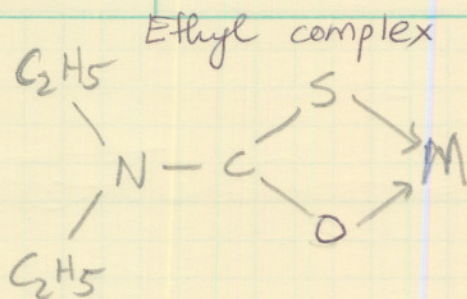 Ethyl complex
C2H5
S
N — C
M
O
C2H5